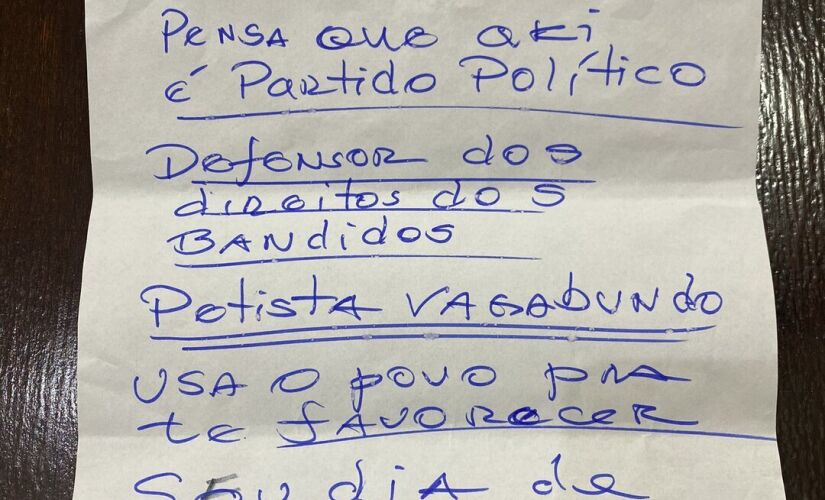 PENSA QUE aki
é Partido Político
DefENSOR dos
direitos do S
BANdidos
PetistA VAGAbUNdo
USA O povo pRA
te fAVORecer
SEU diA de